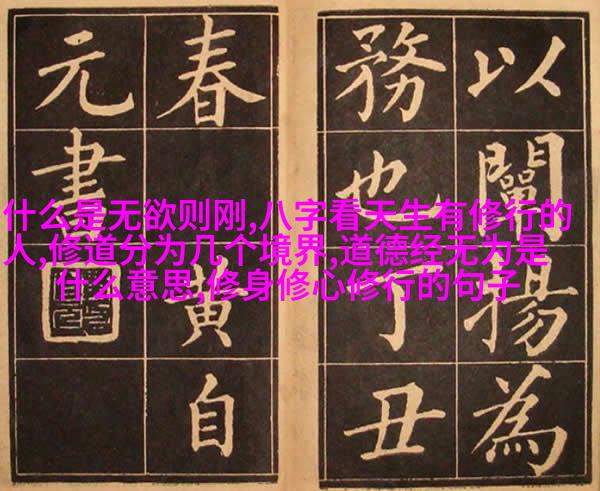 以闡揚為
務也丁丑
春黄自
元書
什么是无欲则刚,八字看天生有修行的
人,修道分为几个境界,道德经无为是
什么意思,修身修心修行的句子